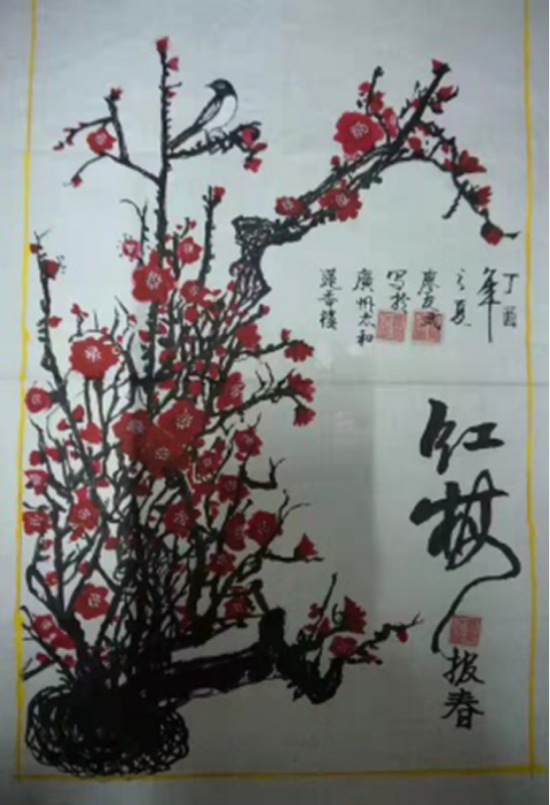 丁酉
年
之夏
廖友
写於
廣州太和
蓮香樓
红梅
报春